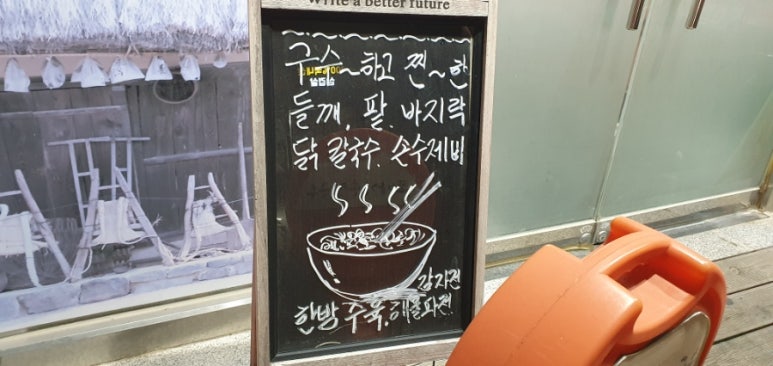 Write a better future
구수~하고 찐~한
들깨, 팥, 바지락
닭 칼국수, 손수제비
감자전
한방 수육, 해물파전